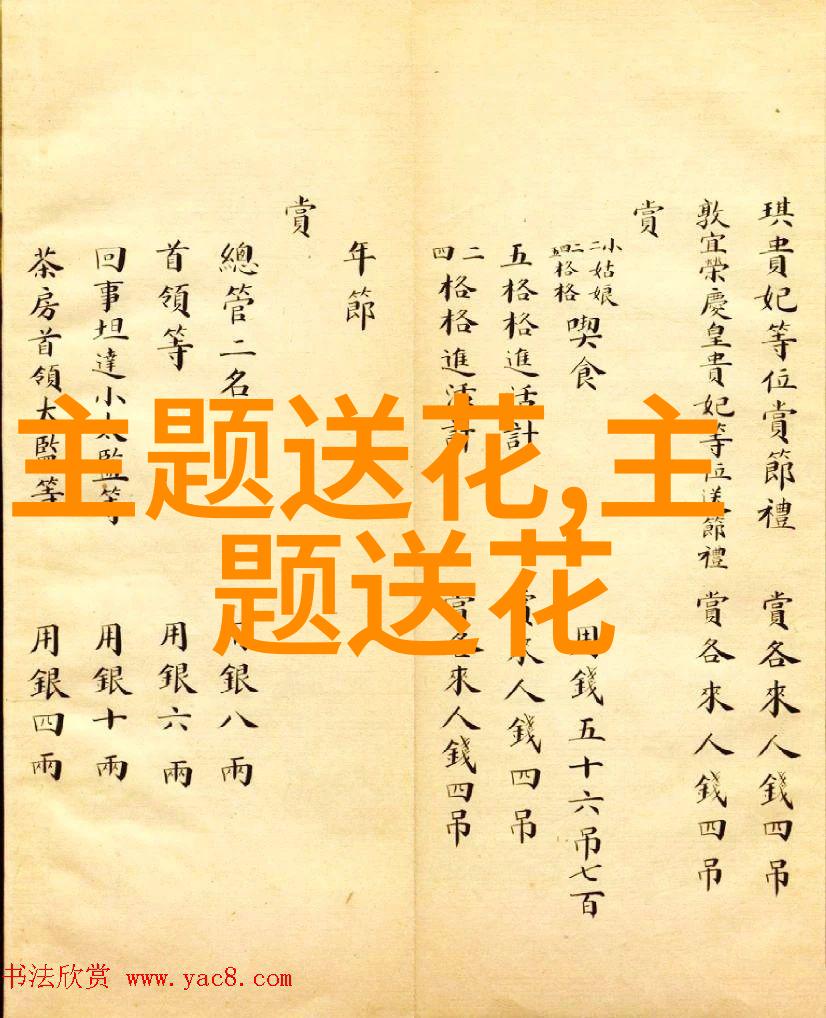 琪貴妃等位賞節禮 賞各來人錢四吊
敦宜榮慶皇貴妃等位送節禮 賞各來人錢四吊
賞
小姑娘二
二格格四格格喫食 用錢五十六吊七百
五格格進活計 賞來人錢四吊
二四格格進活計 賞各來人錢四吊
年節
賞
總管二名 用銀八兩
首領等 用銀六兩
回事坦達小太監等 用銀十兩
茶房首領太監等 用銀四兩
主题送花,主
题送花
书法欣赏 www.yac8.com